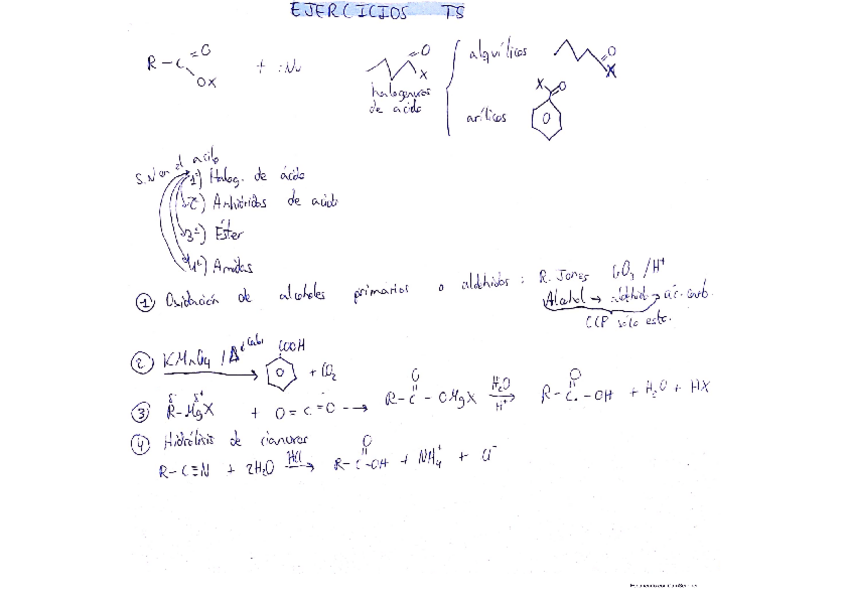 EJERCICIOS T5
R-C=O OX + :Nu O X halogenuros de ácido
alquílicos O X
arílicos X O
S.N en el acilo
1º) Halog. de ácido
2º) Anhídridos de acido
3º) Éster
4º) Amidas
① Oxidación de alcoholes primarios o aldehidos: R. Jones CrO3 /H+
Alcohol → aldehid → ac. carb.
CCP sólo este.
② KMnO4 /Δ COOH + CO2
③ δ- δ+ R-MgX + O=C=O → R-C(=O)-OMgX H2O H+ → R-C(=O)-OH + H2O + HX
④ Hidrólisis de cianuros
R-C≡N + 2H2O HCl → R-C(=O)-OH + NH4+ + Cl-